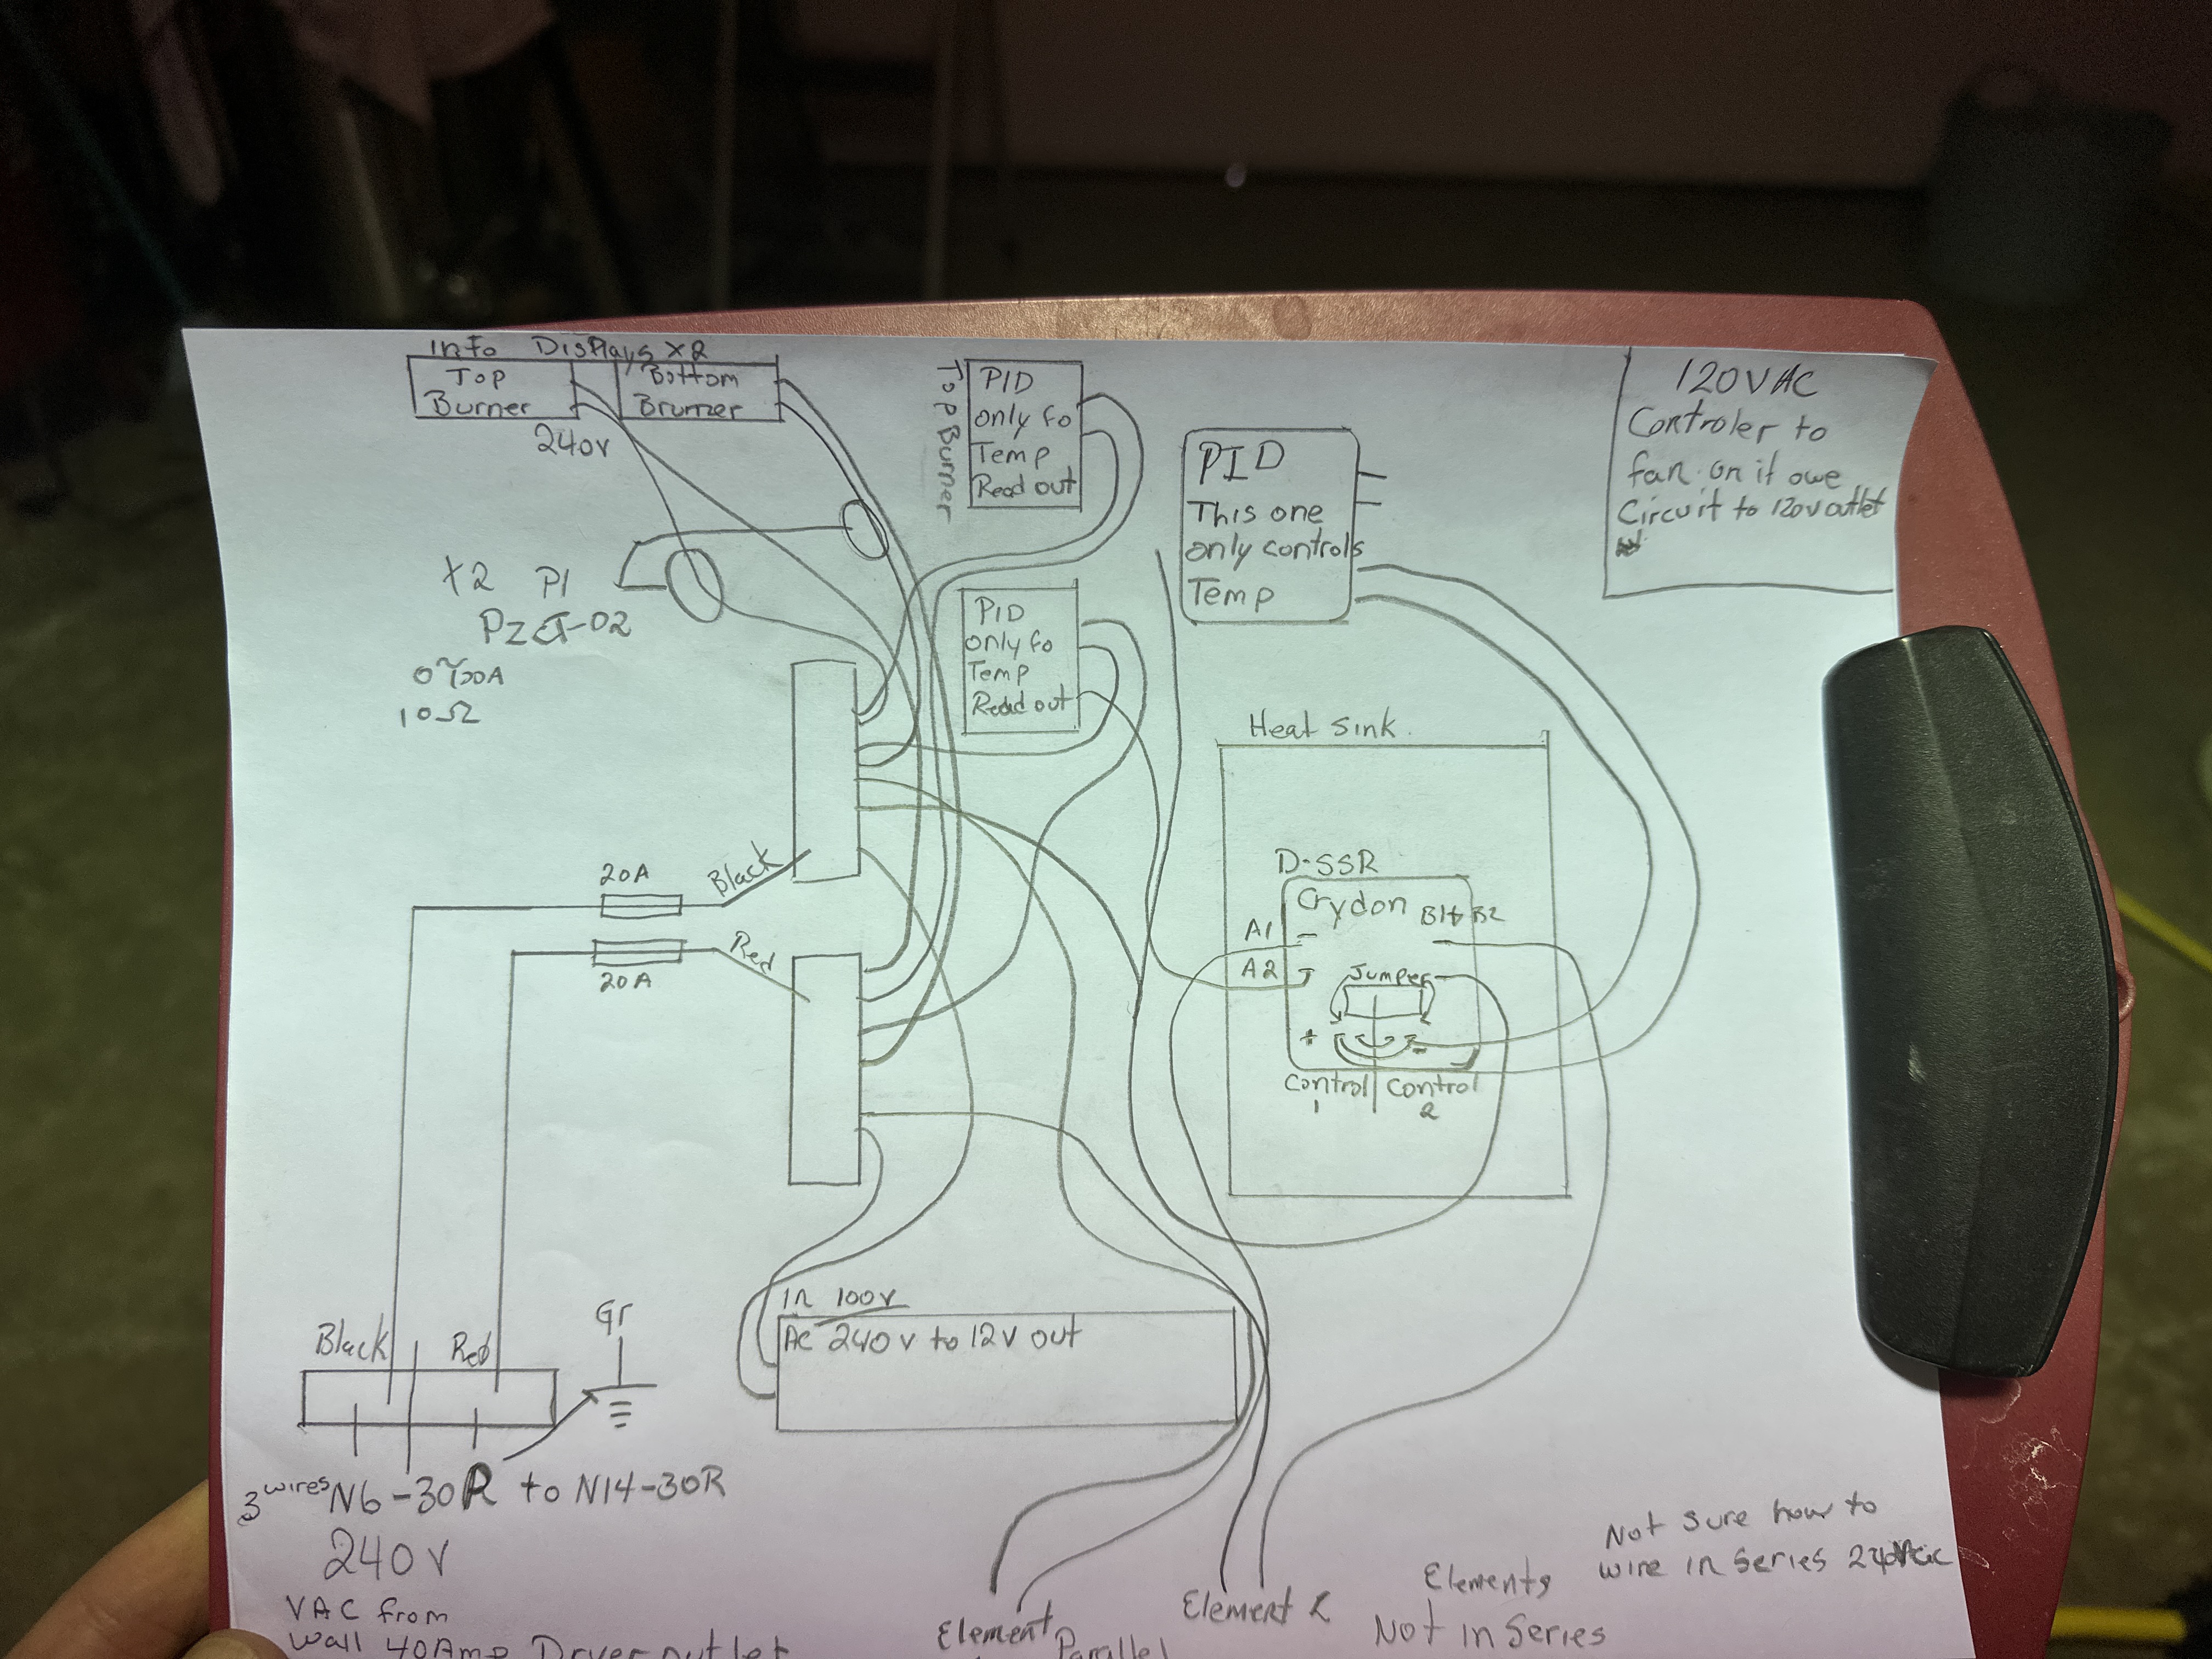 Info Displays x2
Top
Burner
Bottom
Brurner
240v
Top Burner
PID
only fo
Temp
Read out
PID
This one
only controls
Temp
120VAC
Controler to
fan on it owe
Circuit to 120v outlet
x2 P1
PZCT-02
10Ω
PID
only fo
Temp
Read out
Heat Sink
D-SSR
Crydon
B1
B2
A1
A2
Jumper
+
-
Control
1
Control
2
20A
Black
Red
20A
In 100v
AC 240v to 12v out
Black
Red
Gr
3 wires N6-30R to N14-30R
240V
VAC from
Wall 40Amp Dryer outlet
Element
Parallel
Element 2
Elements
Not in Series
Not sure how to
wire in series